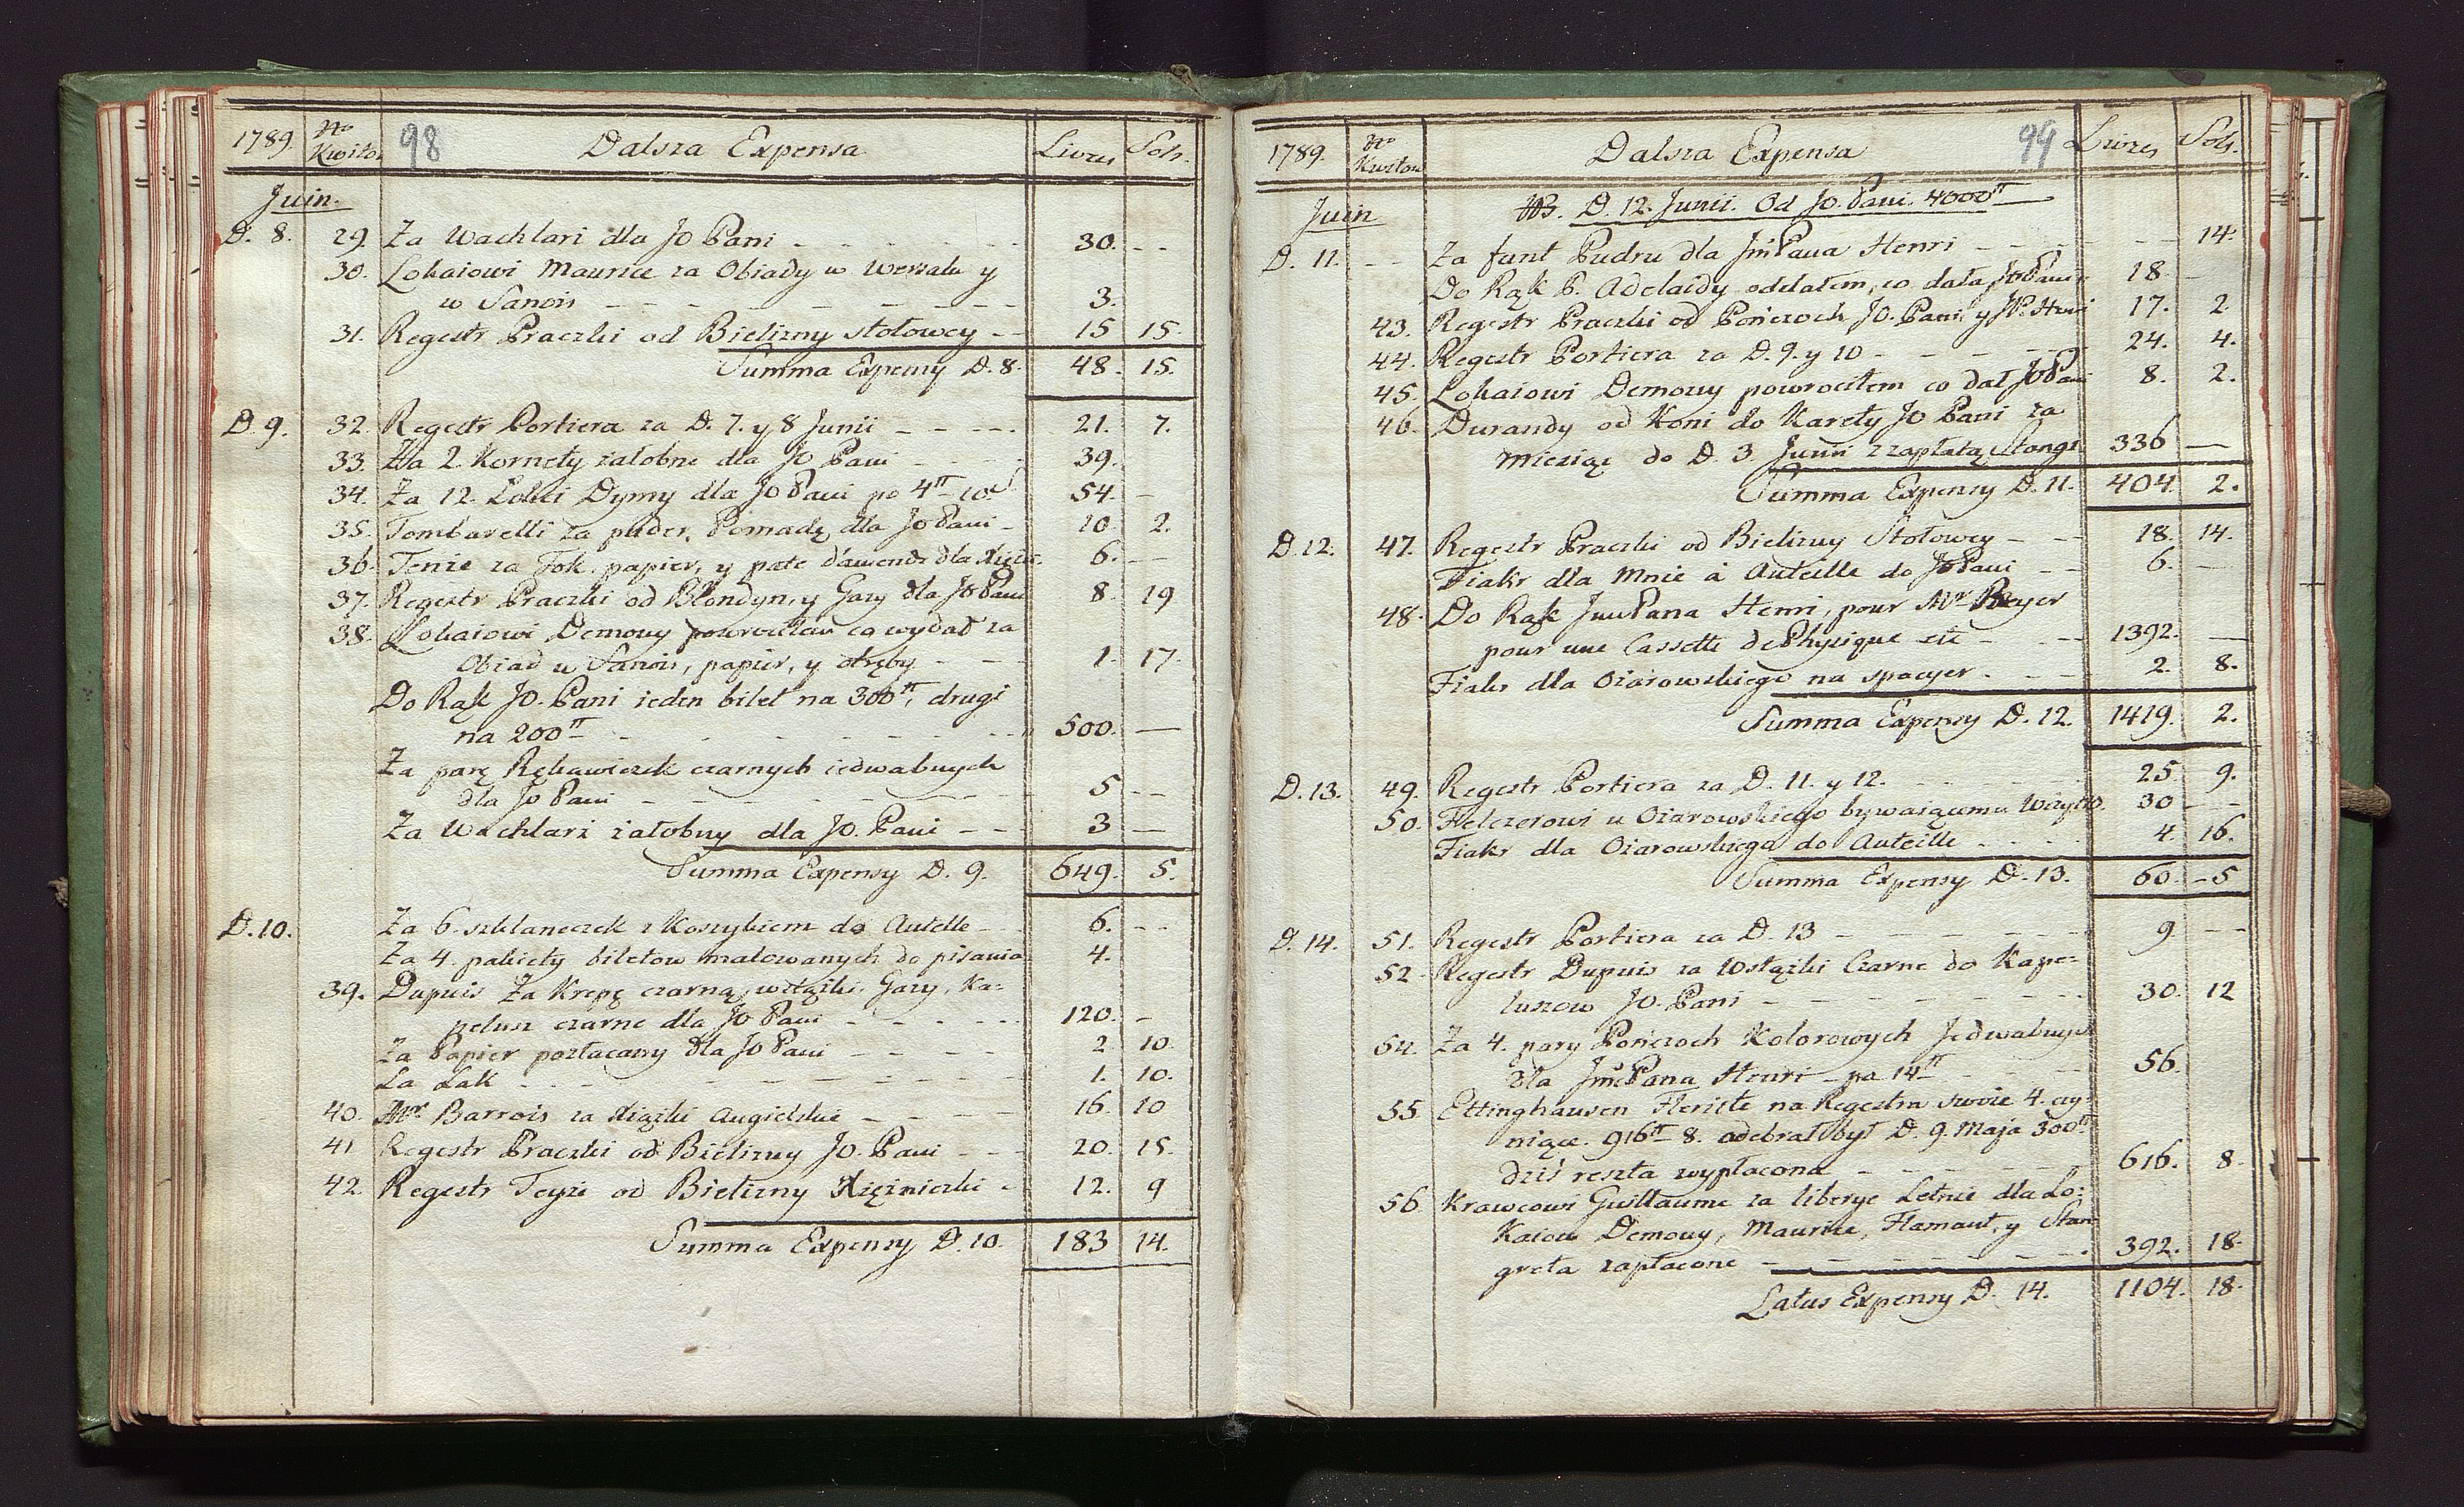 1789. No Kwitow 98 Dalsza Expensa Livres Sols.
Juin.
D. 8. 29. Za Wachlarz dla JO Pani 30. --
30. Lokaiowi Maurice za Obiady w Wersalu y
w Sanois 3.
31. Regestr Praczki od Bielizny stołowey 15 15
Summa Expensy D. 8. 48. 15.
D. 9. 32. Regestr Portiera za D. 7. y 8 Junii 21. 7.
33. Za 2 Kornety żałobne dla JO Pani 39.
34. Za 12. Łokci Dymy dla JO Pani po 4tt 10s 54. -
35. Tombarelli za puder, Pomadę dla JO Pani 10 2.
36. Tenże za Tok. papier, y pate d'amende dla 6. -
37. Regestr Praczki od Blondyn, y Gazy dla JO Pani 8. 19
38. Lokaiowi Demouy powrocilem co wydał za
Obiad w Sanois, papier, y otręby 1. 17.
Do Rąk JO. Pani ieden bilet na 300tt, drugi
na 200tt 500. —
Za parę Rękawiczek czarnych iedwabnych
dla JO Pani 5 --
Za Wachlarz żałobny dla JO. Pani 3 —
Summa Expensy D. 9. 649. 5.
D. 10. Za 6. szklaneczek z Koszykiem do Auteille 6. --
Za 4. pakiety biletow malowanych do pisania 4.
39. Dupuis Za Krepę czarną, wstążki, Gazy, Ka-
pelusz czarne dla JO Pani 120. -
Za Papier pozłacany dla JO Pani 2 10.
Za Lak 1. 10.
40. Mr. Barrois za Xiążki Angielskie 16. 10
41 Regestr Praczki od Bielizny JO. Pani 20. 15.
42. Regestr Teyże od Bielizny Xiężniczki 12. 9
Summa Expensy D. 10. 183 14.
1789. No Kwitow Dalsza Expensa 99 Livres Sols.
Juin NB. D. 12. Junii. Od JO. Pani. 4000tt
D. 11. -- Za funt Pudru dla JmPana Henri 14.
Do Rąk P. Adelaidy oddałem, co dała JO Pani 18 —
43. Regestr Praczki od Pończoch JO. Pani y JP. Henri 17. 2.
44. Regestr Portiera za D. 9. y 10 24. 4.
45. Lokaiowi Demouy powrocilem co dał JO Pani 8. 2.
46. Durandy od Koni do Karety JO Pani za
Miesiąc do D. 3 Junii z zapłatą Stangr. 336 —
Summa Expensy D. 11. 404. 2.
D. 12. 47. Regestr Praczki od Bielizny Stołowey 18. 14.
Fiakr dla Mnie à Auteille do JO Pani 6. -
48. Do Rąk JmPana Henri, pour Mr Beyer
pour une Cassette de Physique etc 1392. —
Fiakr dla Ożarowskiego na spacyer 2. 8.
Summa Expensy D. 12. 1419. 2.
D. 13. 49. Regestr Portiera za D. 11. y 12. 25 9.
50. Felczerowi u Ożarowskiego bywaiącemu 30 --
Fiakr dla Ożarowskiego do Auteille 4. 16.
Summa Expensy D. 13. 60. - 5
D. 14. 51. Regestr Portiera za D. 13 9. --
52 Regestr Dupuis za Wstążki Czarne do Kape-
luszow JO. Pani 30. 12
54. Za 4. pary Pończoch Kolorowych Jedwabnych
dla JmPana Henri po 14tt 56.
55 Ettinghausen Fleriste na Regestra swoie 4. czy-
niące. 916tt 8. odebrał był D. 9. Maja 300tt
dziś reszta wypłacona 616. 8.
56 Krawcowi Guillaume za liberye Letnie dla Lo-
kaiow Demouy, Maurice, Flamant, y Stan-
greta zapłacone 392. 18.
Latus Expensy D. 14. 1104. 18.